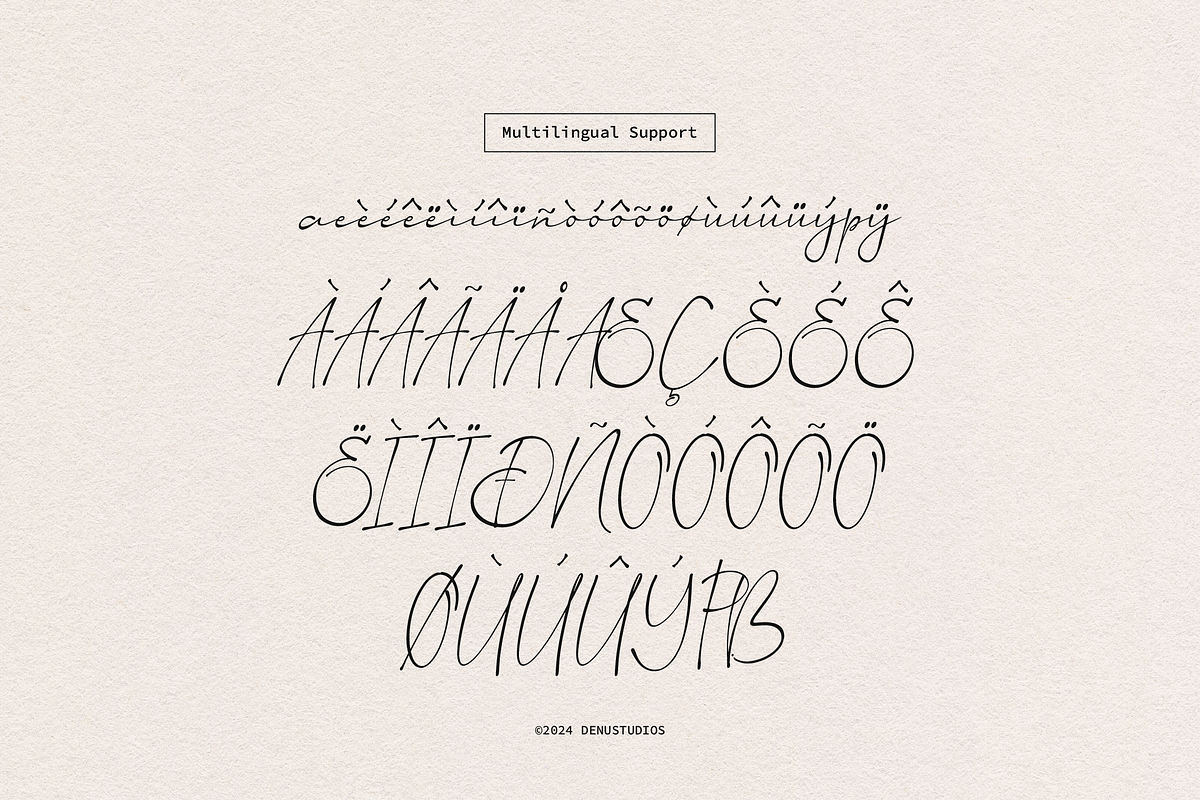 Multilingual Support
aeèéêëìíîïñòóôõöøùúûüýþÿ
ÀÁÂÃÄÅÆÇÈÉÊ
ËÌÎÏÐÑÒÓÔÕÖ
ØÙÚÛÝÞß
©2024 DENUSTUDIOS